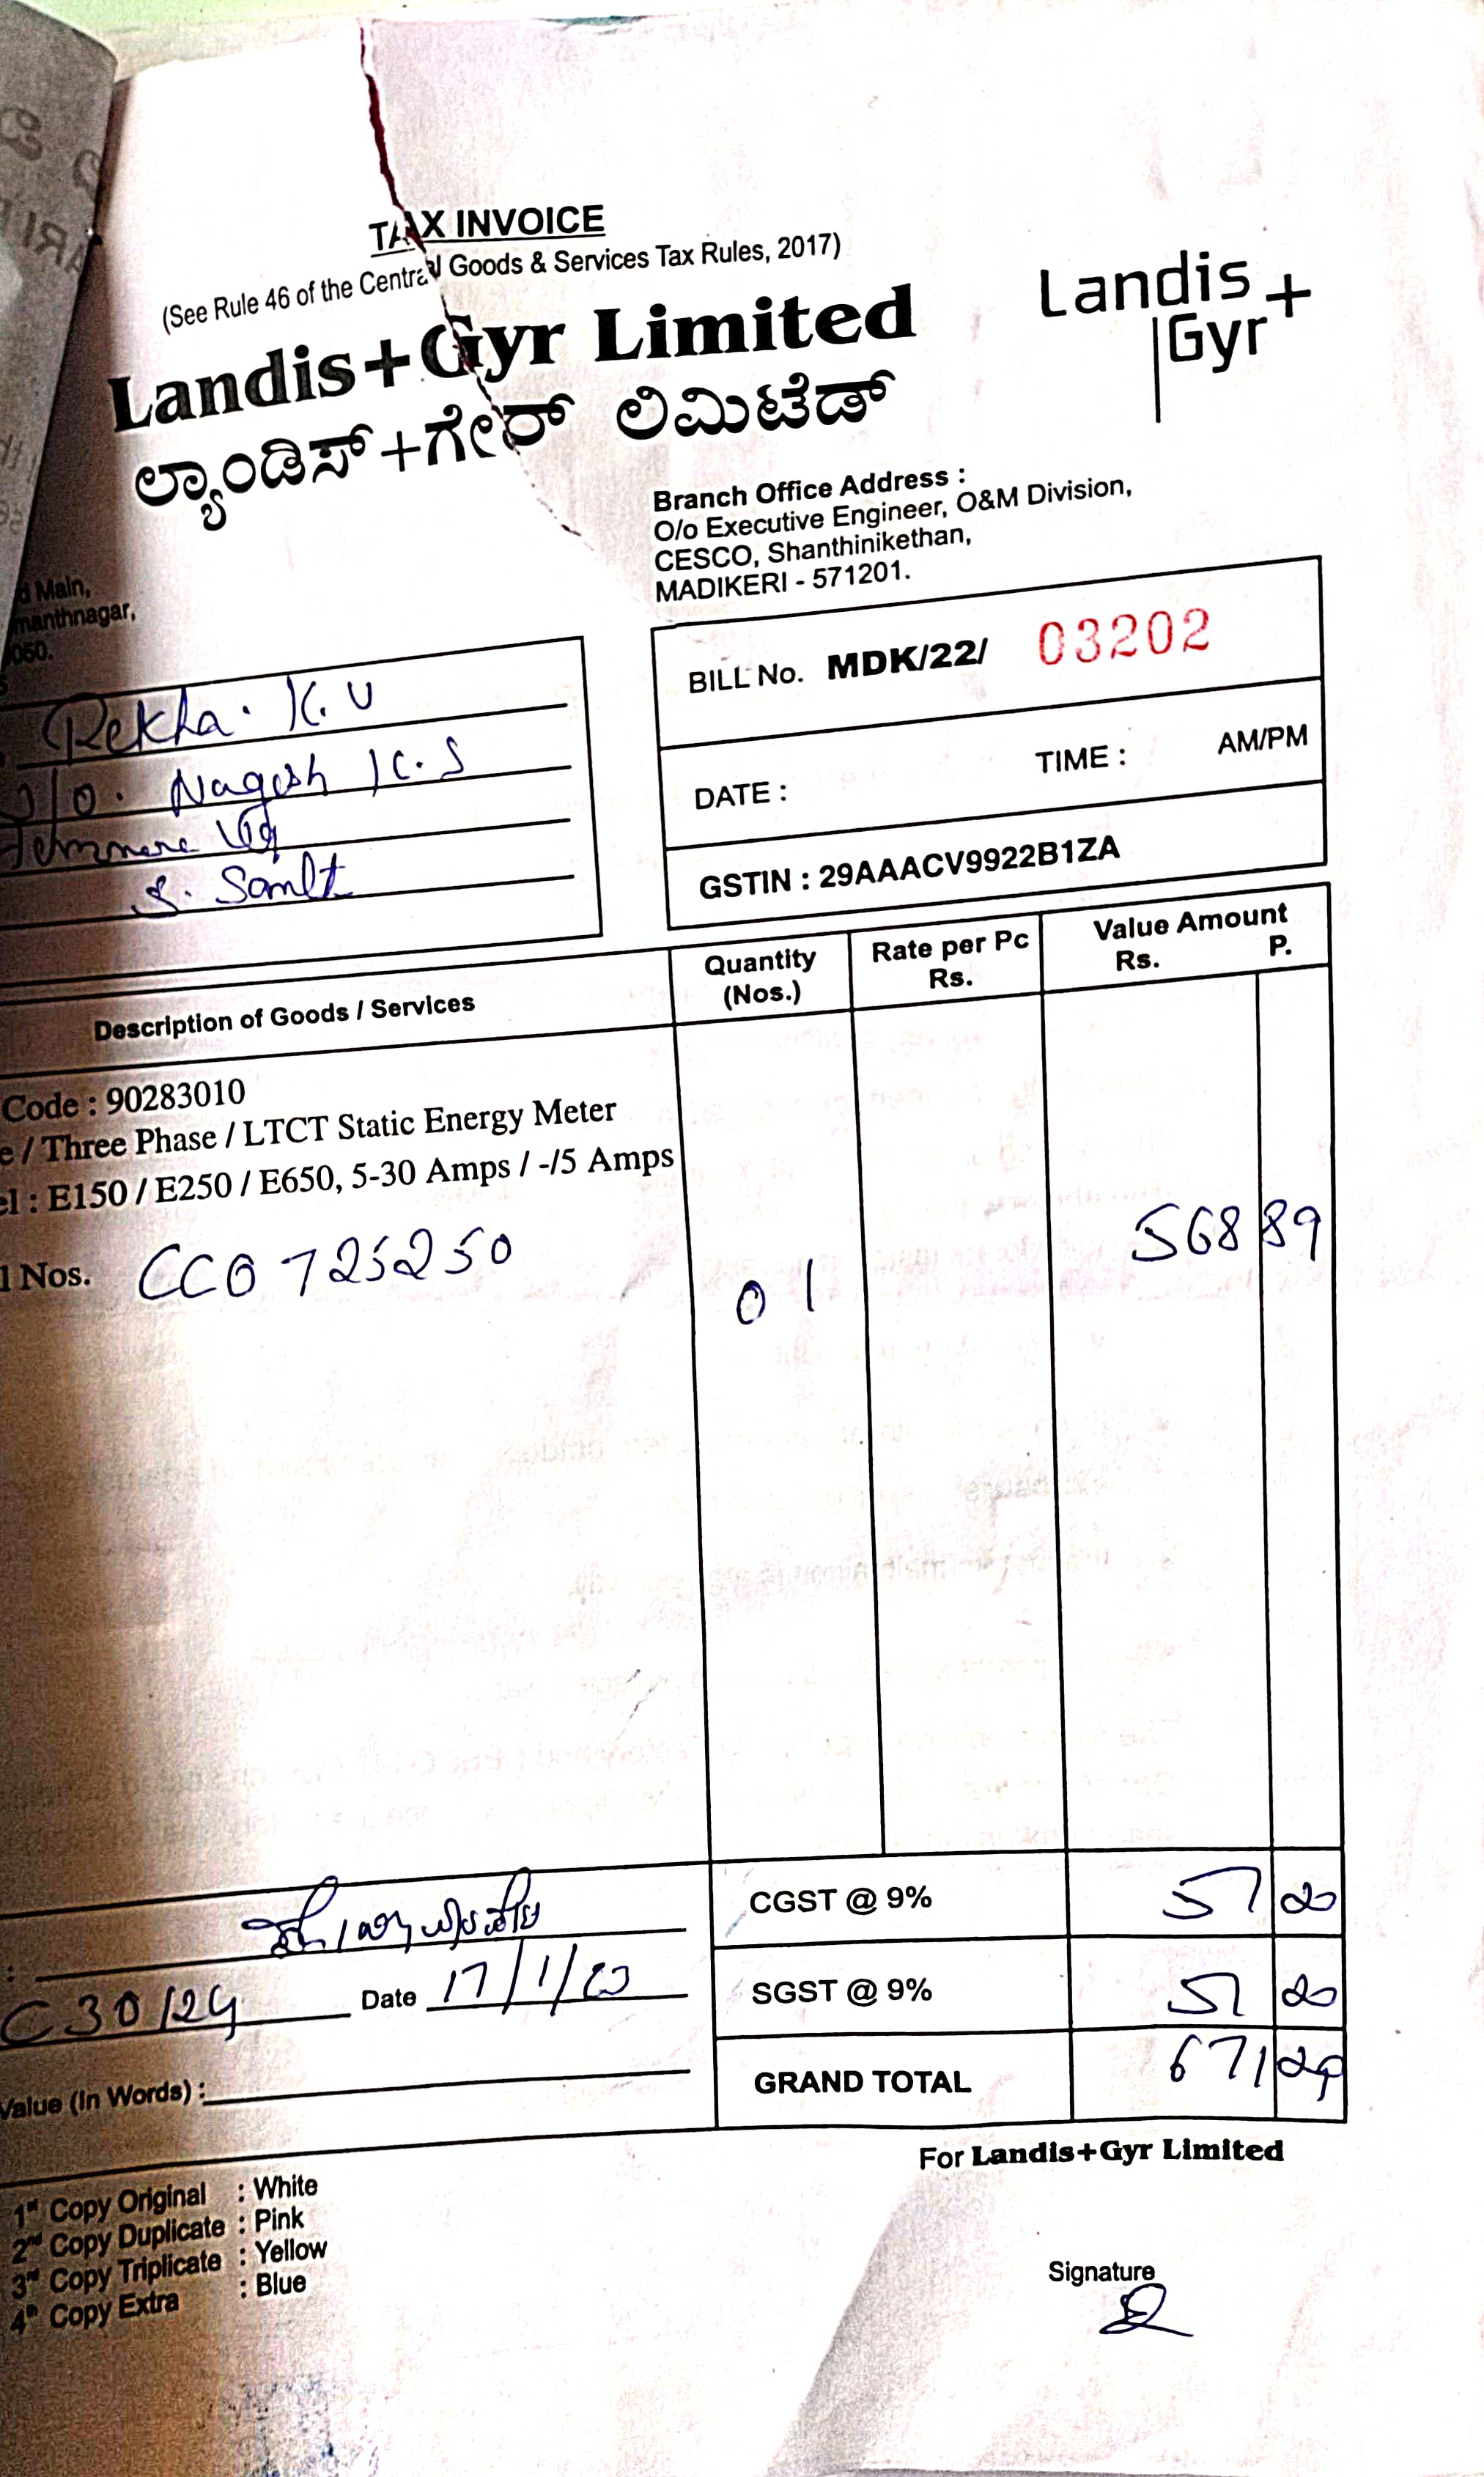 TAX INVOICE
(See Rule 46 of the Central Goods & Services Tax Rules, 2017)
Landis+Gyr Limited
ಲ್ಯಾಂಡಿಸ್+ಗೇರ್ ಲಿಮಿಟೆಡ್
Landis+
Gyr
Branch Office Address :
O/o Executive Engineer, O&M Division,
CESCO, Shanthinikethan,
MADIKERI - 571201.
d Main,
manthnagar,
050.
Rekha. K. U
Nagesh K. S
BILL No. MDK/22/ 03202
DATE : TIME : AM/PM
GSTIN : 29AAACV9922B1ZA
Description of Goods / Services
Quantity
(Nos.)
Rate per Pc
Rs.
Value Amount
Rs. P.
Code : 90283010
e / Three Phase / LTCT Static Energy Meter
el : E150 / E250 / E650, 5-30 Amps / -/5 Amps
l Nos. CC0725250 01 568 89
CGST @ 9% 51 20
Date 17/1/23
SGST @ 9% 51 20
GRAND TOTAL 671 29
Value (In Words) :
For Landis+Gyr Limited
1st Copy Original : White
2nd Copy Duplicate : Pink
3rd Copy Triplicate : Yellow
4th Copy Extra : Blue
Signature